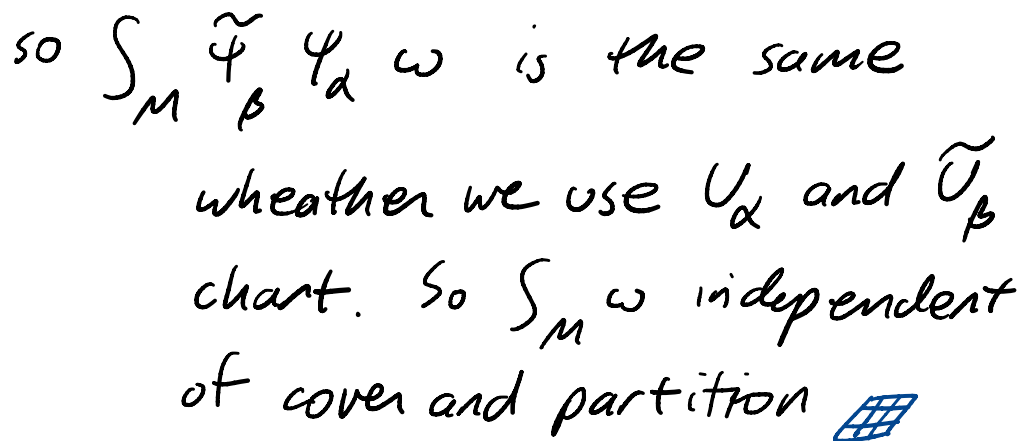 so ∫_M ψ̃_β ψ_α ω is the same
wheather we use U_α and Ũ_β
chart. So ∫_M ω independent
of cover and partition